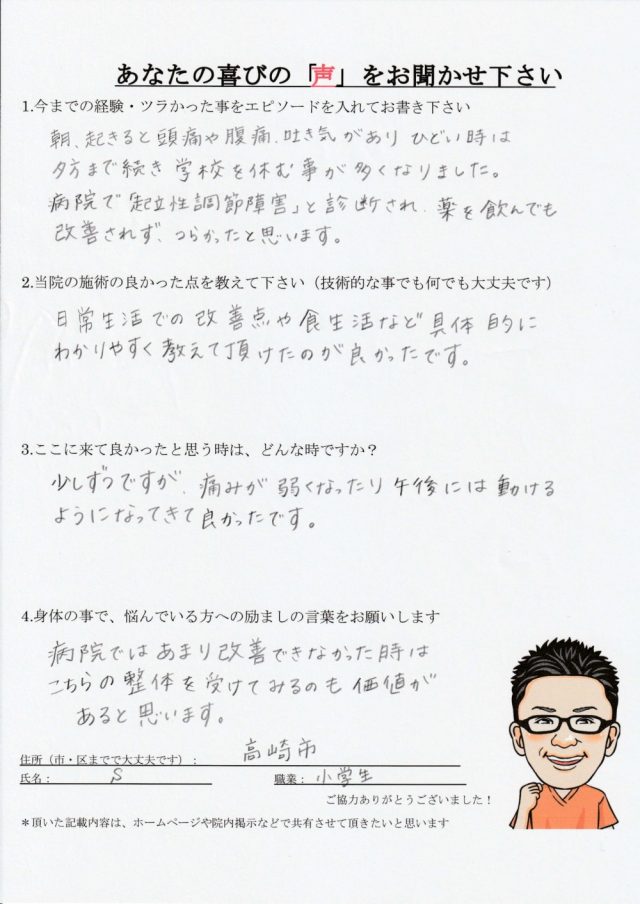 あなたの喜びの「声」をお聞かせ下さい
1.今までの経験・ツラかった事をエピソードを入れてお書き下さい
朝、起きると頭痛や腹痛、吐き気があり ひどい時は
夕方まで続き 学校を休む事が多くなりました。
病院で「起立性調節障害」と診断され、薬を飲んでも
改善されず、つらかったと思います。
2.当院の施術の良かった点を教えて下さい（技術的な事でも何でも大丈夫です）
日常生活での改善点や食生活など具体的に
わかりやすく教えて頂けたのが良かったです。
3.ここに来て良かったと思う時は、どんな時ですか？
少しずつですが、痛みが弱くなったり午後には動ける
ようになってきて良かったです。
4.身体の事で、悩んでいる方への励ましの言葉をお願いします
病院ではあまり改善できなかった時は
こちらの整体を受けてみるのも価値が
あると思います。
住所（市・区までで大丈夫です）： 高崎市
氏名： S 職業： 小学生
ご協力ありがとうございました！
＊頂いた記載内容は、ホームページや院内掲示などで共有させて頂きたいと思います